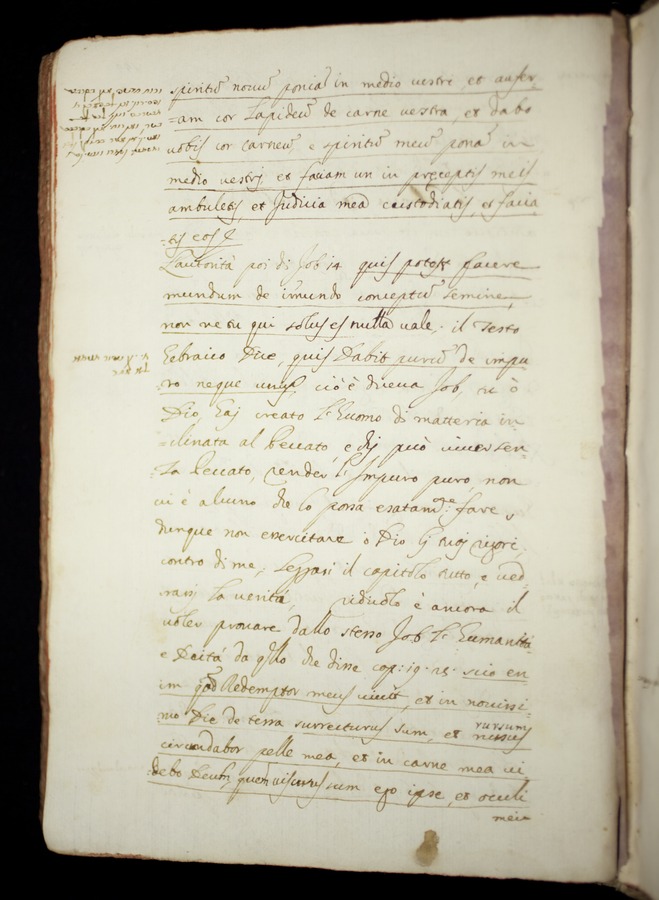 spiritū novū poniā in medio vestri, et aufer-
=am cor Lapideū de carne vestra, et dabo
vobis cor carneū e spiritū meū ponā in
medio vestrj et faciam un in preceptis meis
ambuletis, et Judicia mea custodiatis, et facia
=tis eos
L'autorità poi di Job 14 quis potest facere
mundum de imundo conceptū semine,
non ne tu qui solus es nulla vale, il Testo
Eebraico Dice, quis Dabit purū de impu
ro neque unus, cio è diceva Job, tu ò
Dio, haj creato L'Huomo di matteria in
=clinata al Peccato, e dj può viver sen
za Peccato, render l'Impuro puro, non
vi è alcuno che lo possa esatamēte fare,
dunque non essercitare ò Dio lj tuoj rigori
contro di me, Leggasi il capitolo tutto, e ved
rasj La verità, ridicolo è ancora il
voler provare dallo stesso Job L'Humanità
e Deità da qllo che disse cap: 19. 25. scio en
im qōd Redemptor meus vivit, et in novissi
mo Die de terra surrecturus sum, et rursum
circundabor pelle mea, et in carne mea vi
debo Deum, quem visurus sum ego ipse, et oculi
mei